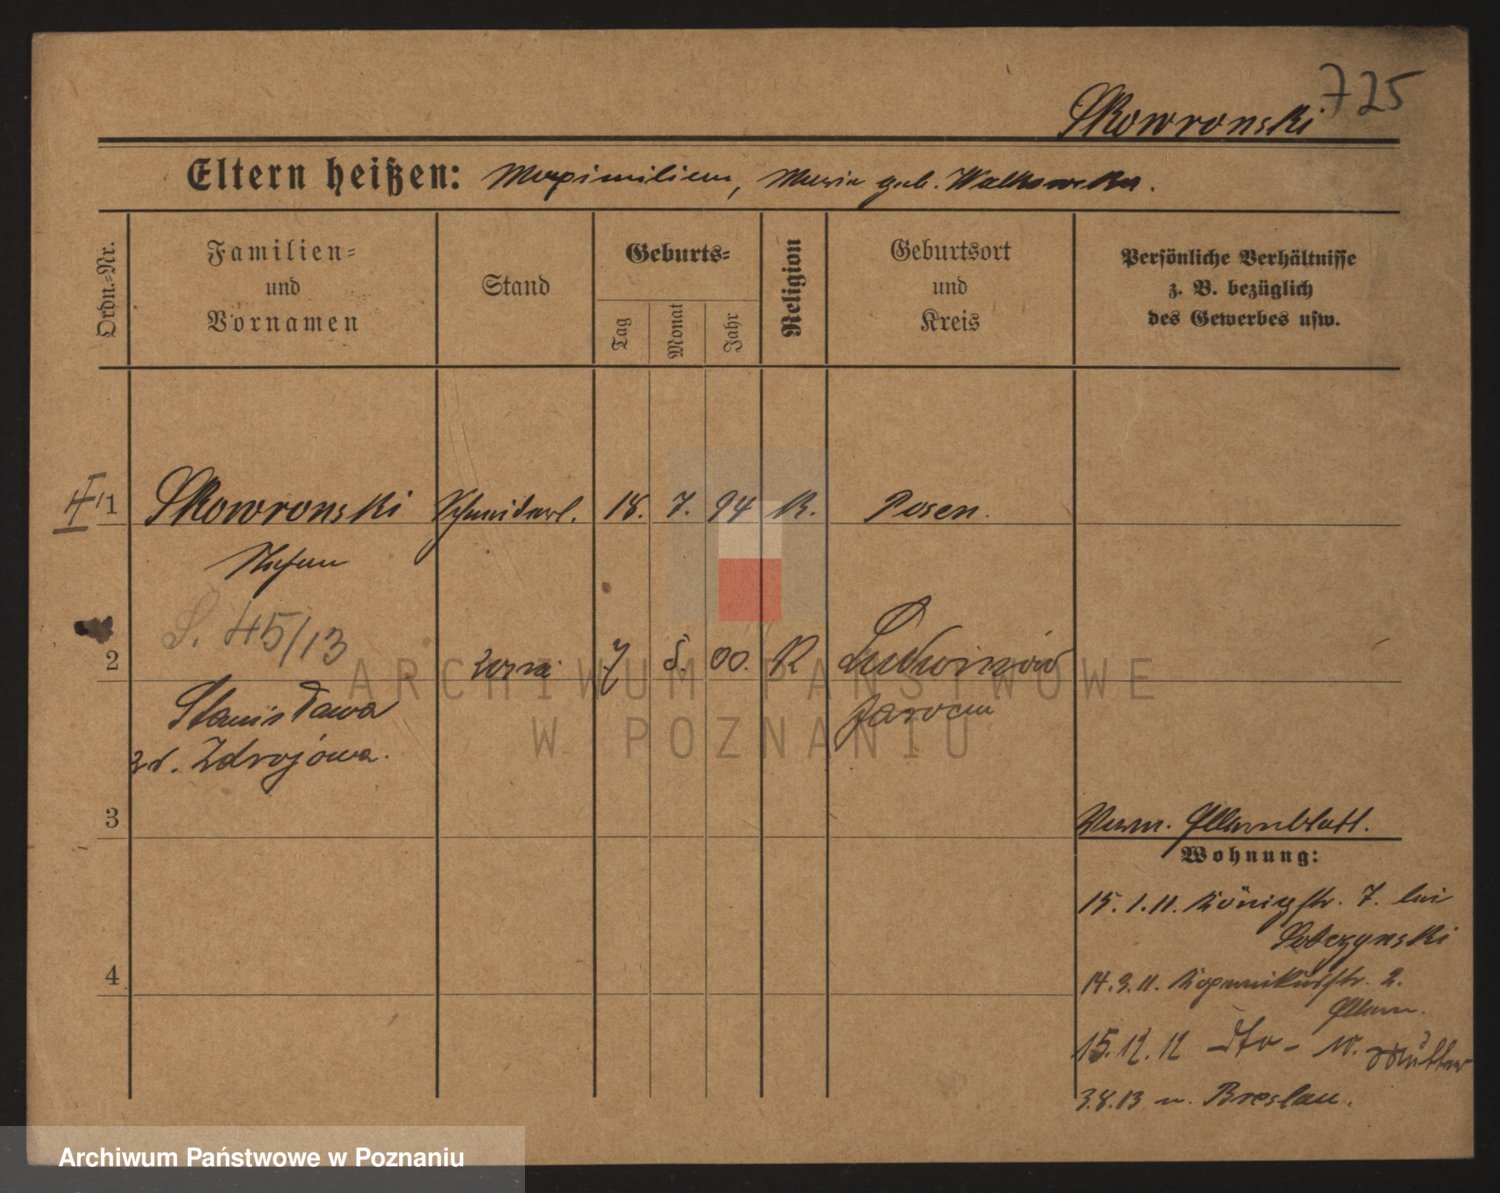 725
Skowronski
Eltern heißen: Maximilian, Maria geb. Walkowska.
Ordn.=Nr.
Familien=
und
Vornamen
Stand
Geburts=
Tag
Monat
Jahr
Religion
Geburtsort
und
Kreis
Persönliche Verhältnisse
z. B. bezüglich
des Gewerbes usw.
1 Skowronski Schneiderl. 18. 7. 94 K. Posen.
Stefan
S. 45/13
2 7 5. 00. K Ludwinów
Stanisława Jarocin
Zdrojowa.
3
Elternblatt.
Wohnung:
15.1.11. Königstr. 7. bei
Sobczynski
4
14.3.11. Kopernikusstr. 2.
Eltern.
15.12.12 – dto – W. Mutter
3.8.13 n. Breslau.
ARCHIWUM PAŃSTWOWE
W POZNANIU
Archiwum Państwowe w Poznaniu